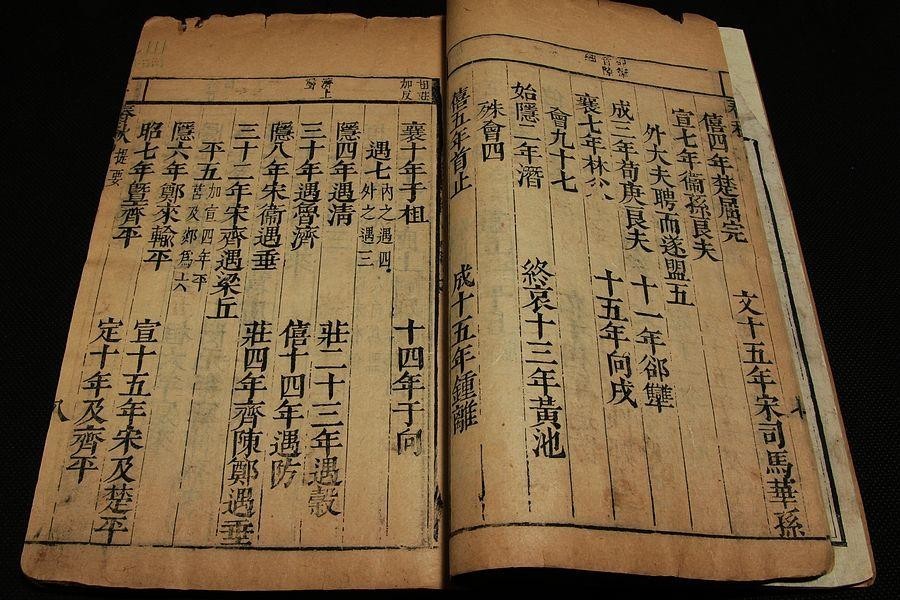 僖四年楚屈完 文十五年宋司馬華孫
宣七年衞孫良夫
外大夫聘而遂盟五
成三年荀庚良夫 十一年郤犨
襄七年林父 十五年向戌
會九十七
始隱二年潛 終哀十三年黃池
殊會四
僖五年首止 成十五年鍾離
柤莊
加反
濟上
聲
襄十年于柤 十四年于向
遇七 內之遇四
外之遇三
隱四年遇清 莊二十三年遇穀
三十年遇魯濟 僖十四年遇防
隱八年宋衞遇垂 莊四年齊陳鄭遇垂
三十二年宋齊遇梁丘
平五 加宣四年平
莒及郯爲六
隱六年鄭來輸平 宣十五年宋及楚平
昭七年曁齊平 定十年及齊平
春秋提要
八